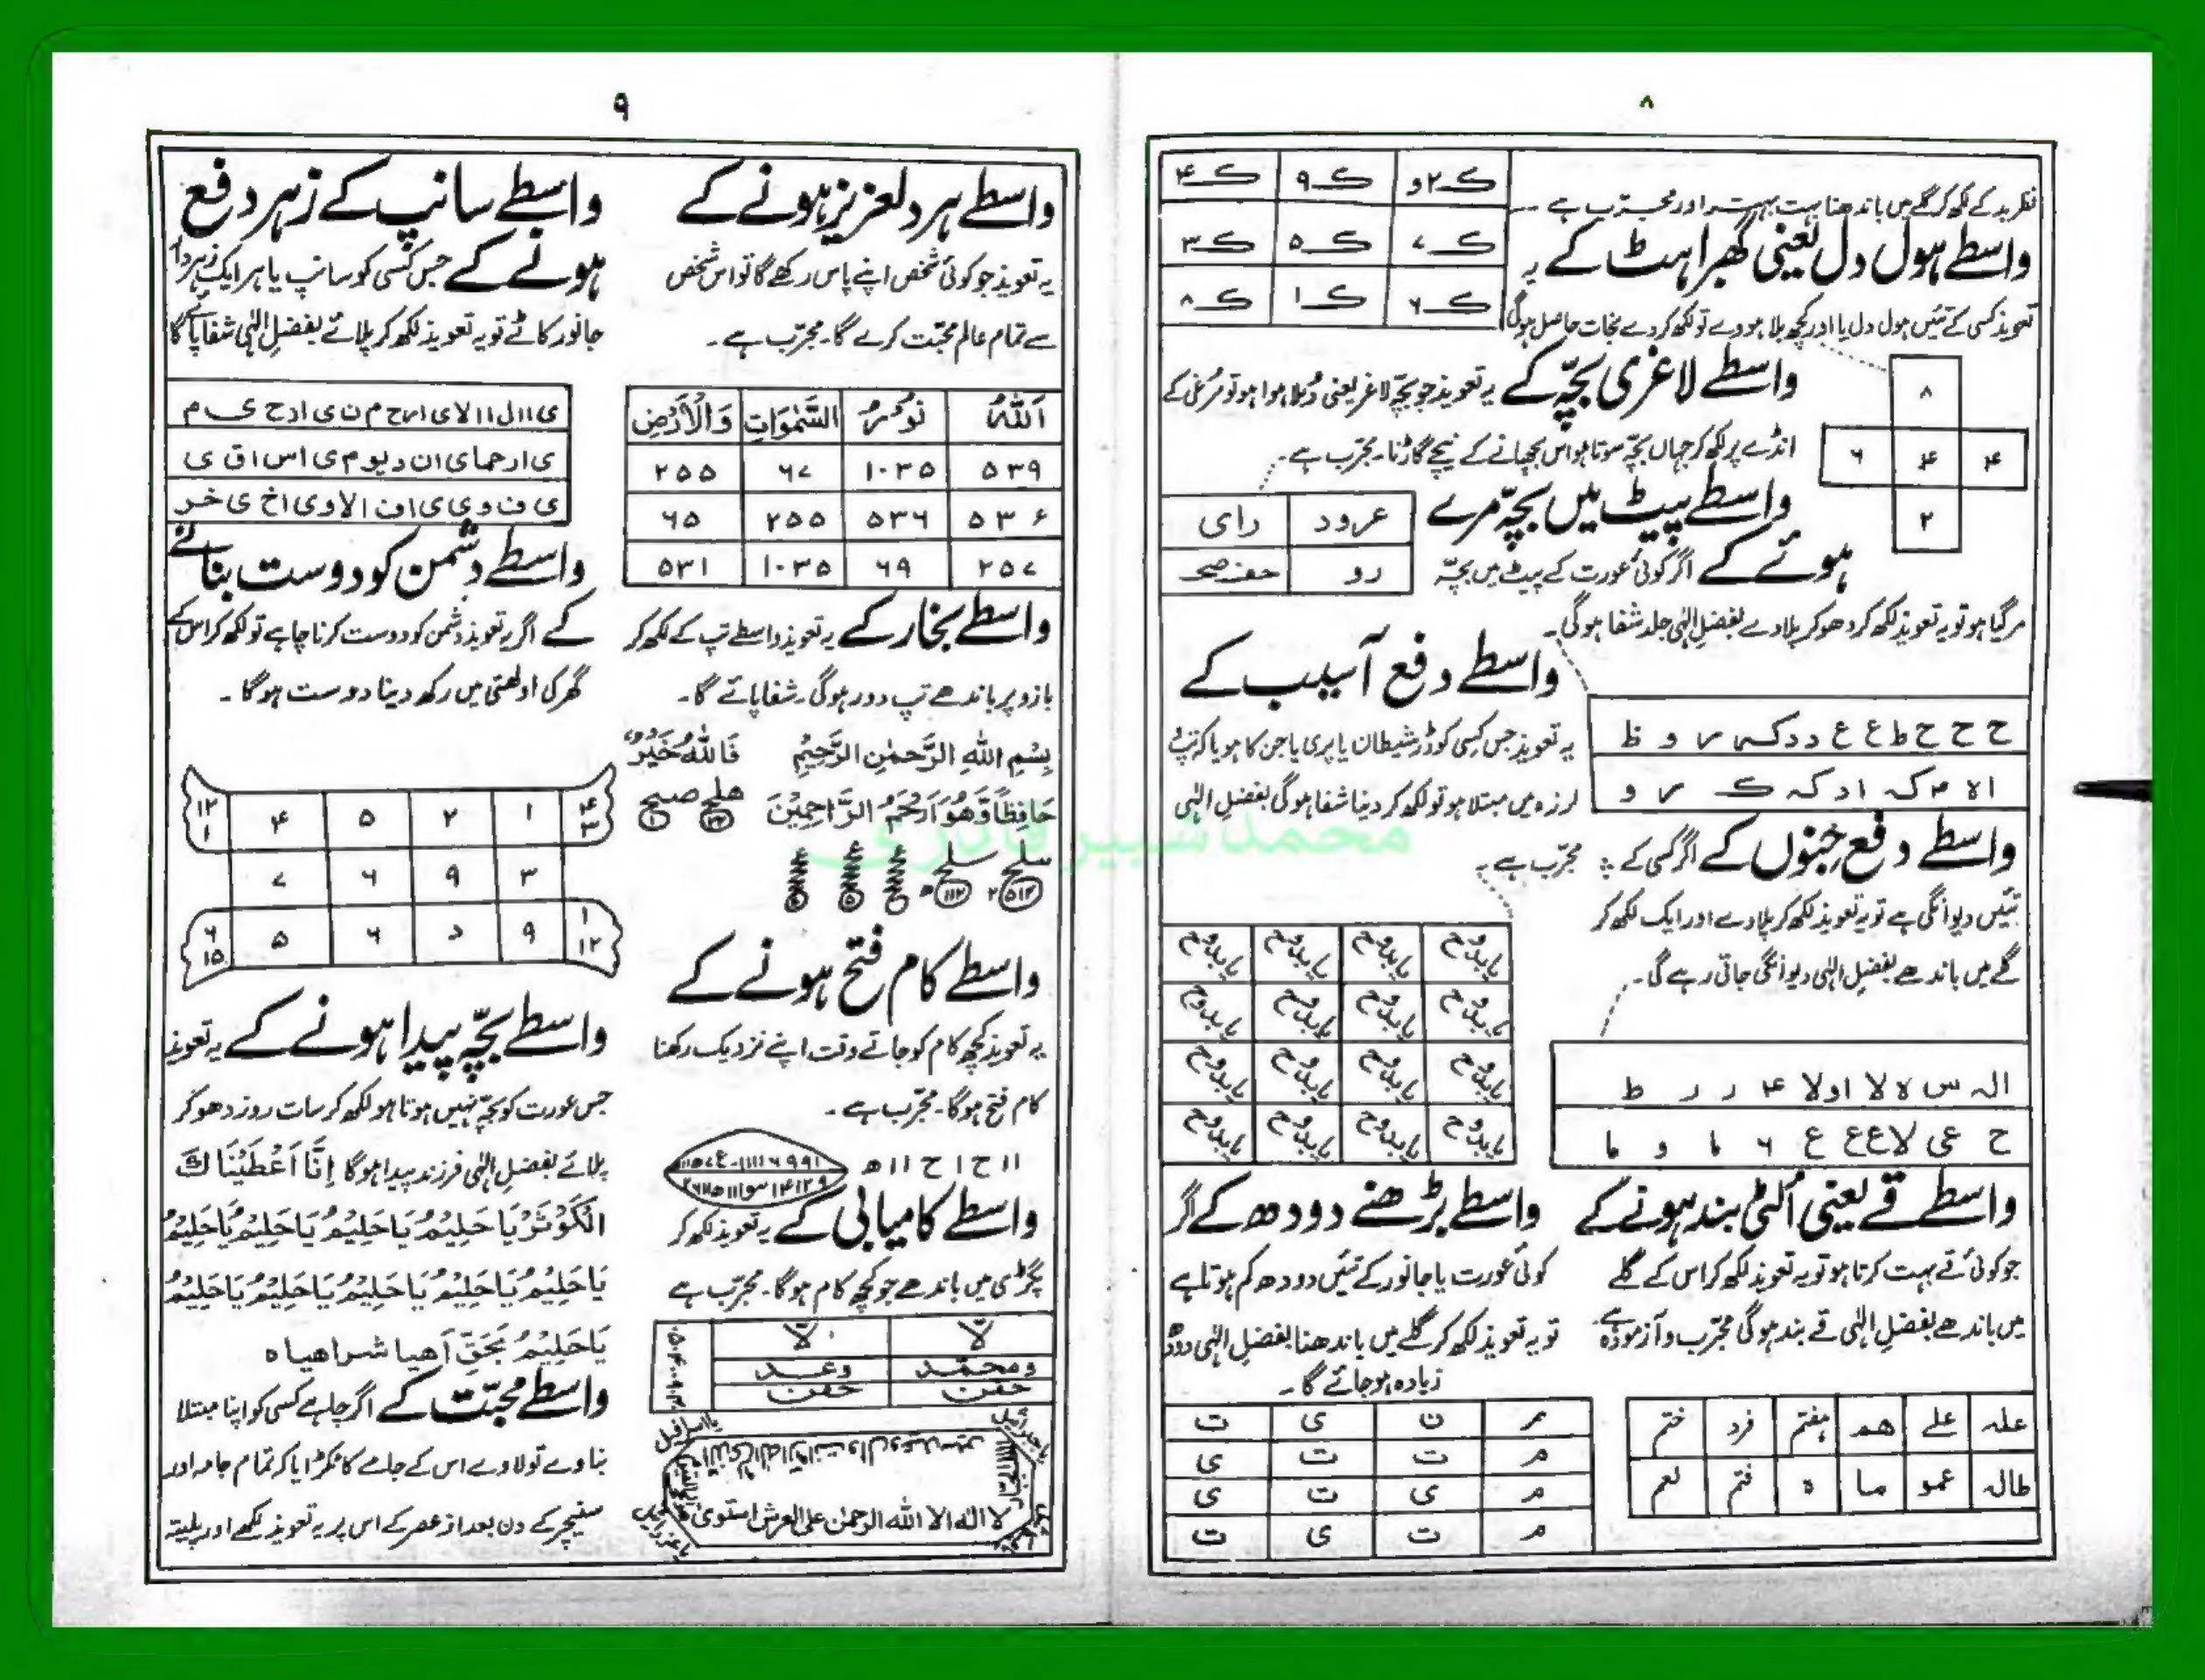 ۸
نظر بد کے لکھ کر گلے میں باندھنا بہت بہتر اور مجرّب ہے
ک۲و ک۹ ک۴
ک۷ ک۵ ک۳
ک۶ ک۱ ک۸
واسطے ہول دل یعنی گھبراہٹ کے یہ
تعویذ کسی کے تئیں ہول دل یا اور کچھ بلا ہووے تو لکھ کر دے نجات حاصل ہوگی
۸
۴ ۴ ۶
۲
واسطے لاغری بچّہ کے یہ تعویذ جو بچّہ لاغر یعنی دُبلا ہوا ہو تو مُرغی کے
انڈے پر لکھ کر جہاں بچّہ سوتا ہو اس بچھانے کے نیچے گاڑنا۔ مجرّب ہے۔
واسطے پیٹ میں بچّہ مرے
ہوئے کے اگر کوئی عورت کے پیٹ میں بچّہ
مر گیا ہو تو یہ تعویذ لکھ کر دھو کر پلا دے بفضلِ الٰہی جلد شفا ہوگی۔
عرود رای
رو
ح ح ح ط ع ع د د
واسطے دفع آسیب کے
یہ تعویذ جس کسی کو ڈر شیطان یا پری یا جن کا ہو یا کہ تپ
لرزہ میں مبتلا ہو تو لکھ کر دینا شفا ہوگی بفضلِ الٰہی
مجرّب ہے۔
یا بدوح یا بدوح یا بدوح یا بدوح
یا بدوح یا بدوح یا بدوح یا بدوح
یا بدوح یا بدوح یا بدوح یا بدوح
یا بدوح یا بدوح یا بدوح یا بدوح
واسطے دفع جنوں کے اگر کسی کے
تئیں دیوانگی ہے تو یہ تعویذ لکھ کر پلا دے اور ایک لکھ کر
گلے میں باندھے بفضلِ الٰہی دیوانگی جاتی رہے گی۔
الہ س ہ لا لا اولا ۴ ر ر ط
ح عی لا ع ع ع ع ۶ ما و ما
واسطے قے یعنی اُلٹی بند ہونے کے
جو کوئی قے بہت کرتا ہو تو یہ تعویذ لکھ کر اس کے گلے
میں باندھے بفضلِ الٰہی قے بند ہوگی مجرّب و آزمودہ ہے۔
علہ علے ھم ہفتم فرد ختم
طالہ عمو ما ہ فتم لعم
واسطے بڑھنے دودھ کے اگر
کوئی عورت یا جانور کے تئیں دودھ کم ہوتا ہے
تو یہ تعویذ لکھ کر گلے میں باندھنا بفضلِ الٰہی دودھ
زیادہ ہو جائے گا۔
م ت ی ت
م ت ت ی
م ی ت ی
م ت ی ت
۹
واسطے ہر دلعزیز ہونے کے
یہ تعویذ جو کوئی شخص اپنے پاس رکھے گا تو اس شخص
سے تمام عالم محبّت کرے گا۔ مجرّب ہے۔
اَللّٰہُ نُوْرُ السَّمٰوَاتِ وَالْاَرْضِ
۵۳۹ ۱۰۳۵ ۶۷ ۲۵۵
۵۳۶ ۵۳۶ ۲۵۵ ۶۵
۲۵۷ ۶۹ ۱۰۳۵ ۵۳۱
واسطے بخار کے یہ تعویذ واسطے تپ کے لکھ کر
بازو پر باندھے تپ دور ہوگی۔ شفا پائے گا۔
بِسْمِ اللّٰہِ الرَّحْمٰنِ الرَّحِیْمِ فَاللّٰہُ خَیْرٌ
حَافِظًا وَّھُوَ اَرْحَمُ الرَّاحِمِیْنَ
واسطے کام فتح ہونے کے
یہ تعویذ کچھ کام کو جاتے وقت اپنے نزدیک رکھنا
کام فتح ہوگا۔ مجرّب ہے۔
۱۱ ح ۱ ح ۱۱ ھ
واسطے کامیابی کے یہ تعویذ لکھ کر
پگڑی میں باندھے جو کچھ کام ہوگا۔ مجرّب ہے
ومحمّد وعد
لا الہ الا اللہ الرحمٰن علی العرش استویٰ
واسطے سانپ کے زہر دفع
ہونے کے جس کسی کو سانپ یا ہر ایک زہردار
جانور کاٹے تو یہ تعویذ لکھ کر پلائے بفضلِ الٰہی شفا پائے گا
واسطے دشمن کو دوست بنانے
کے اگر یہ تعویذ دشمن کو دوست کرنا چاہے تو لکھ کر اس کے
گھر کی اولھتی میں رکھ دینا دوست ہوگا۔
۴ ۳ ۱ ۲ ۵ ۴ ۱۲ ۱
۳ ۹ ۶ ۷
۱ ۱۲ ۹ د ۶ ۵ ۶ ۱۵
واسطے بچّہ پیدا ہونے کے یہ تعویذ
جس عورت کو بچّہ نہیں ہوتا ہو لکھ کر سات روز دھو کر
پلائے بفضلِ الٰہی فرزند پیدا ہوگا اِنَّا اَعْطَیْنَاکَ
الْکَوْثَرَ یَا حَلِیْمُ یَا حَلِیْمُ یَا حَلِیْمُ یَا حَلِیْمُ
یَا حَلِیْمُ یَا حَلِیْمُ یَا حَلِیْمُ یَا حَلِیْمُ یَا حَلِیْمُ
یَا حَلِیْمُ بَحَقِّ اَھیا شراھیا ہ
واسطے محبّت کے اگر چاہے کسی کو اپنا مبتلا
بناوے تو لاوے اس کے جامے کا ٹکڑا یا کہ تمام جامہ اور
سنیچر کے دن بعد از عصر کے اس پر یہ تعویذ لکھے اور پلیتہ
محمد شبیر قادری